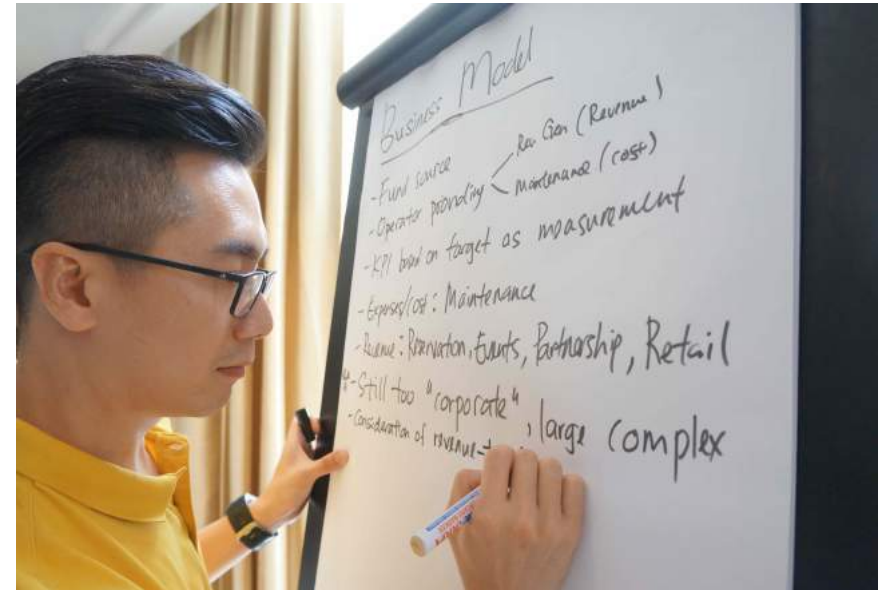 Business Model
- Fund source
- Operator providing < Rev Gen (Revenue)
Maintenance (cost)
- KPI based on target as measurement
- Expenses/cost: Maintenance
- Revenue: Reservation, Events, Partnership, Retail
- Still too "corporate", large complex
- Consideration of revenue-